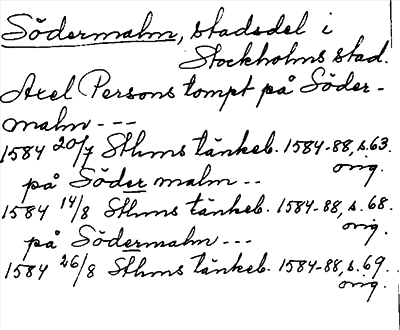 Södermalm, stadsdel i
Stockholms stad.
Axel Persons tompt på Söder-
malm ---
1584 20/7 Sthms tänkeb. 1584-88, s. 63.
orig.
på Söder malm --
1584 14/8 Sthms tänkeb. 1584-88, s. 68.
orig.
på Södermalm ---
1584 26/8 Sthms tänkeb. 1584-88, s. 69.
orig.